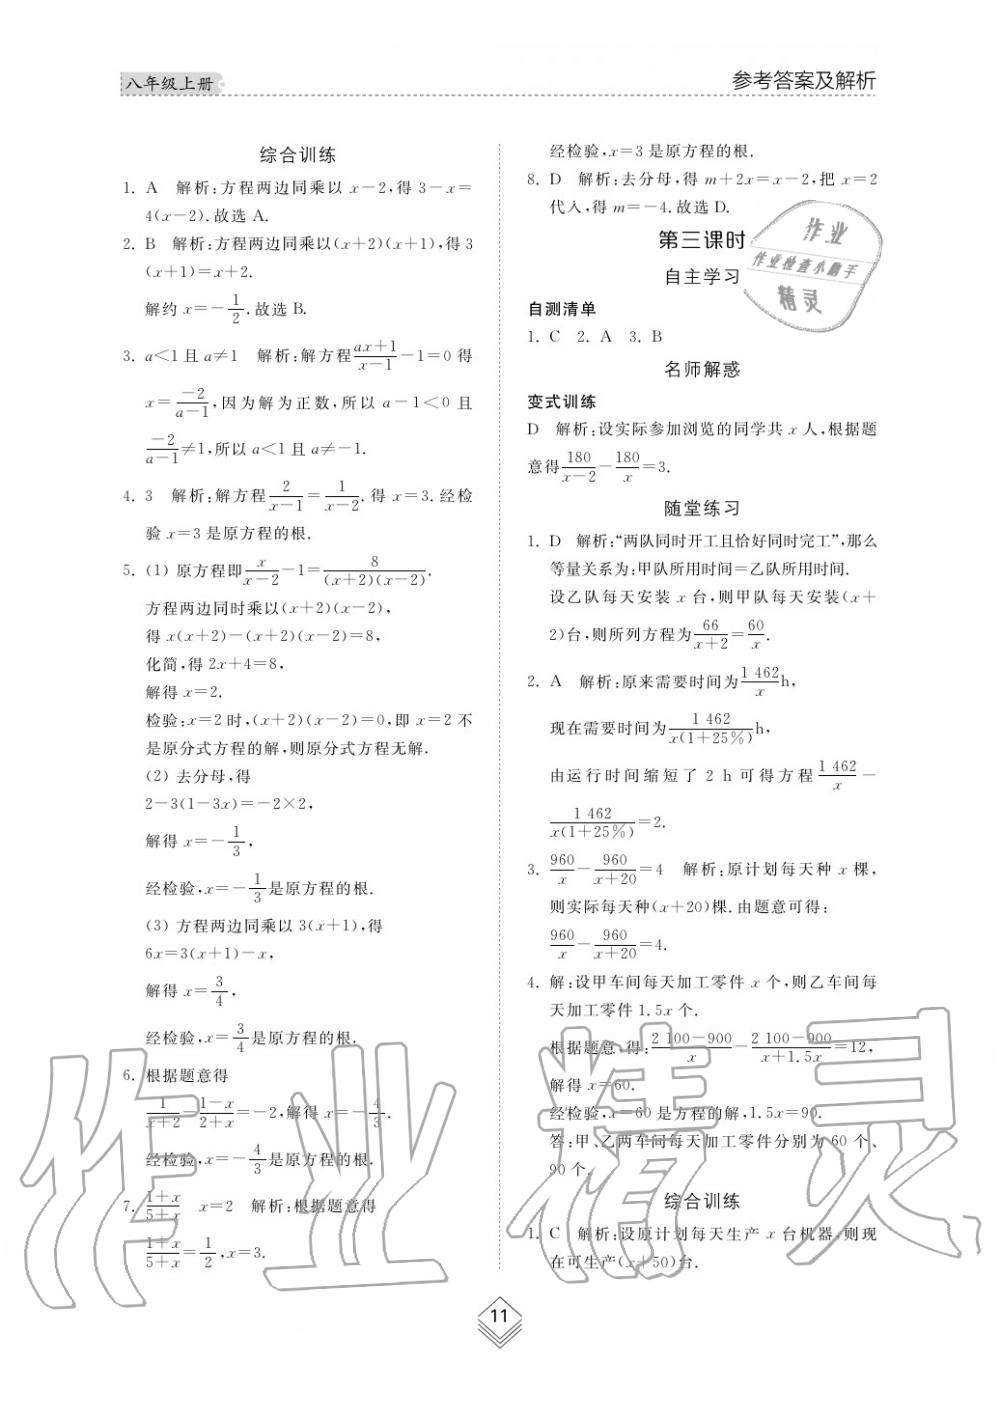 八年级上册
参考答案及解析
综合训练
1. A 解析:方程两边同乘以 x-2,得 3-x=
4(x-2).故选 A.
2. B 解析:方程两边同乘以(x+2)(x+1),得 3
(x+1)=x+2.
解约 x=-1/2.故选 B.
3. a<1 且 a≠1 解析:解方程(ax+1)/(x-1)-1=0 得
x=(-2)/(a-1),因为解为正数,所以 a-1<0 且
(-2)/(a-1)≠1,所以 a<1 且 a≠-1.
4. 3 解析:解方程 2/(x-1)=1/(x-2).得 x=3.经检
验 x=3 是原方程的根.
5. (1) 原方程即 x/(x-2)-1=8/((x+2)(x-2)).
方程两边同时乘以(x+2)(x-2),
得 x(x+2)-(x+2)(x-2)=8,
化简,得 2x+4=8,
解得 x=2.
检验:x=2 时,(x+2)(x-2)=0,即 x=2 不
是原分式方程的解,则原分式方程无解.
(2) 去分母,得
2-3(1-3x)=-2×2,
解得 x=-1/3,
经检验,x=-1/3是原方程的根.
(3) 方程两边同乘以 3(x+1),得
6x=3(x+1)-x,
解得 x=3/4,
经检验,x=3/4是原方程的根.
6. 根据题意得
1/(x+2)-(1-x)/(2+x)=-2,解得 x=-4/3.
经检验,x=-4/3是原方程的根.
7. (1+x)/(5+x) x=2 解析:根据题意得
(1+x)/(5+x)=1/2,x=3.
经检验,x=3 是原方程的根.
8. D 解析:去分母,得 m+2x=x-2,把 x=2
代入,得 m=-4.故选 D.
第三课时
自主学习
自测清单
1. C 2. A 3. B
名师解惑
变式训练
D 解析:设实际参加浏览的同学共 x 人,根据题
意得 180/(x-2)-180/x=3.
随堂练习
1. D 解析:“两队同时开工且恰好同时完工”,那么
等量关系为:甲队所用时间=乙队所用时间.
设乙队每天安装 x 台,则甲队每天安装(x+
2)台,则所列方程为 66/(x+2)=60/x.
2. A 解析:原来需要时间为 1 462/x h,
现在需要时间为 1 462/(x(1+25%)) h,
由运行时间缩短了 2 h 可得方程 1 462/x -
1 462/(x(1+25%))=2.
3. 960/x-960/(x+20)=4 解析:原计划每天种 x 棵,
则实际每天种(x+20)棵.由题意可得:
960/x-960/(x+20)=4.
4. 解:设甲车间每天加工零件 x 个,则乙车间每
天加工零件 1.5x 个.
根据题意,得:(2 100-900)/x-(2 100-900)/(x+1.5x)=12,
解得 x=60.
经检验,x=60 是方程的解,1.5x=90.
答:甲、乙两车间每天加工零件分别为 60 个、
90 个.
综合训练
1. C 解析:设原计划每天生产 x 台机器,则现
在可生产(x+50)台.
11
作业
作业检查小帮手
精灵
作业精灵